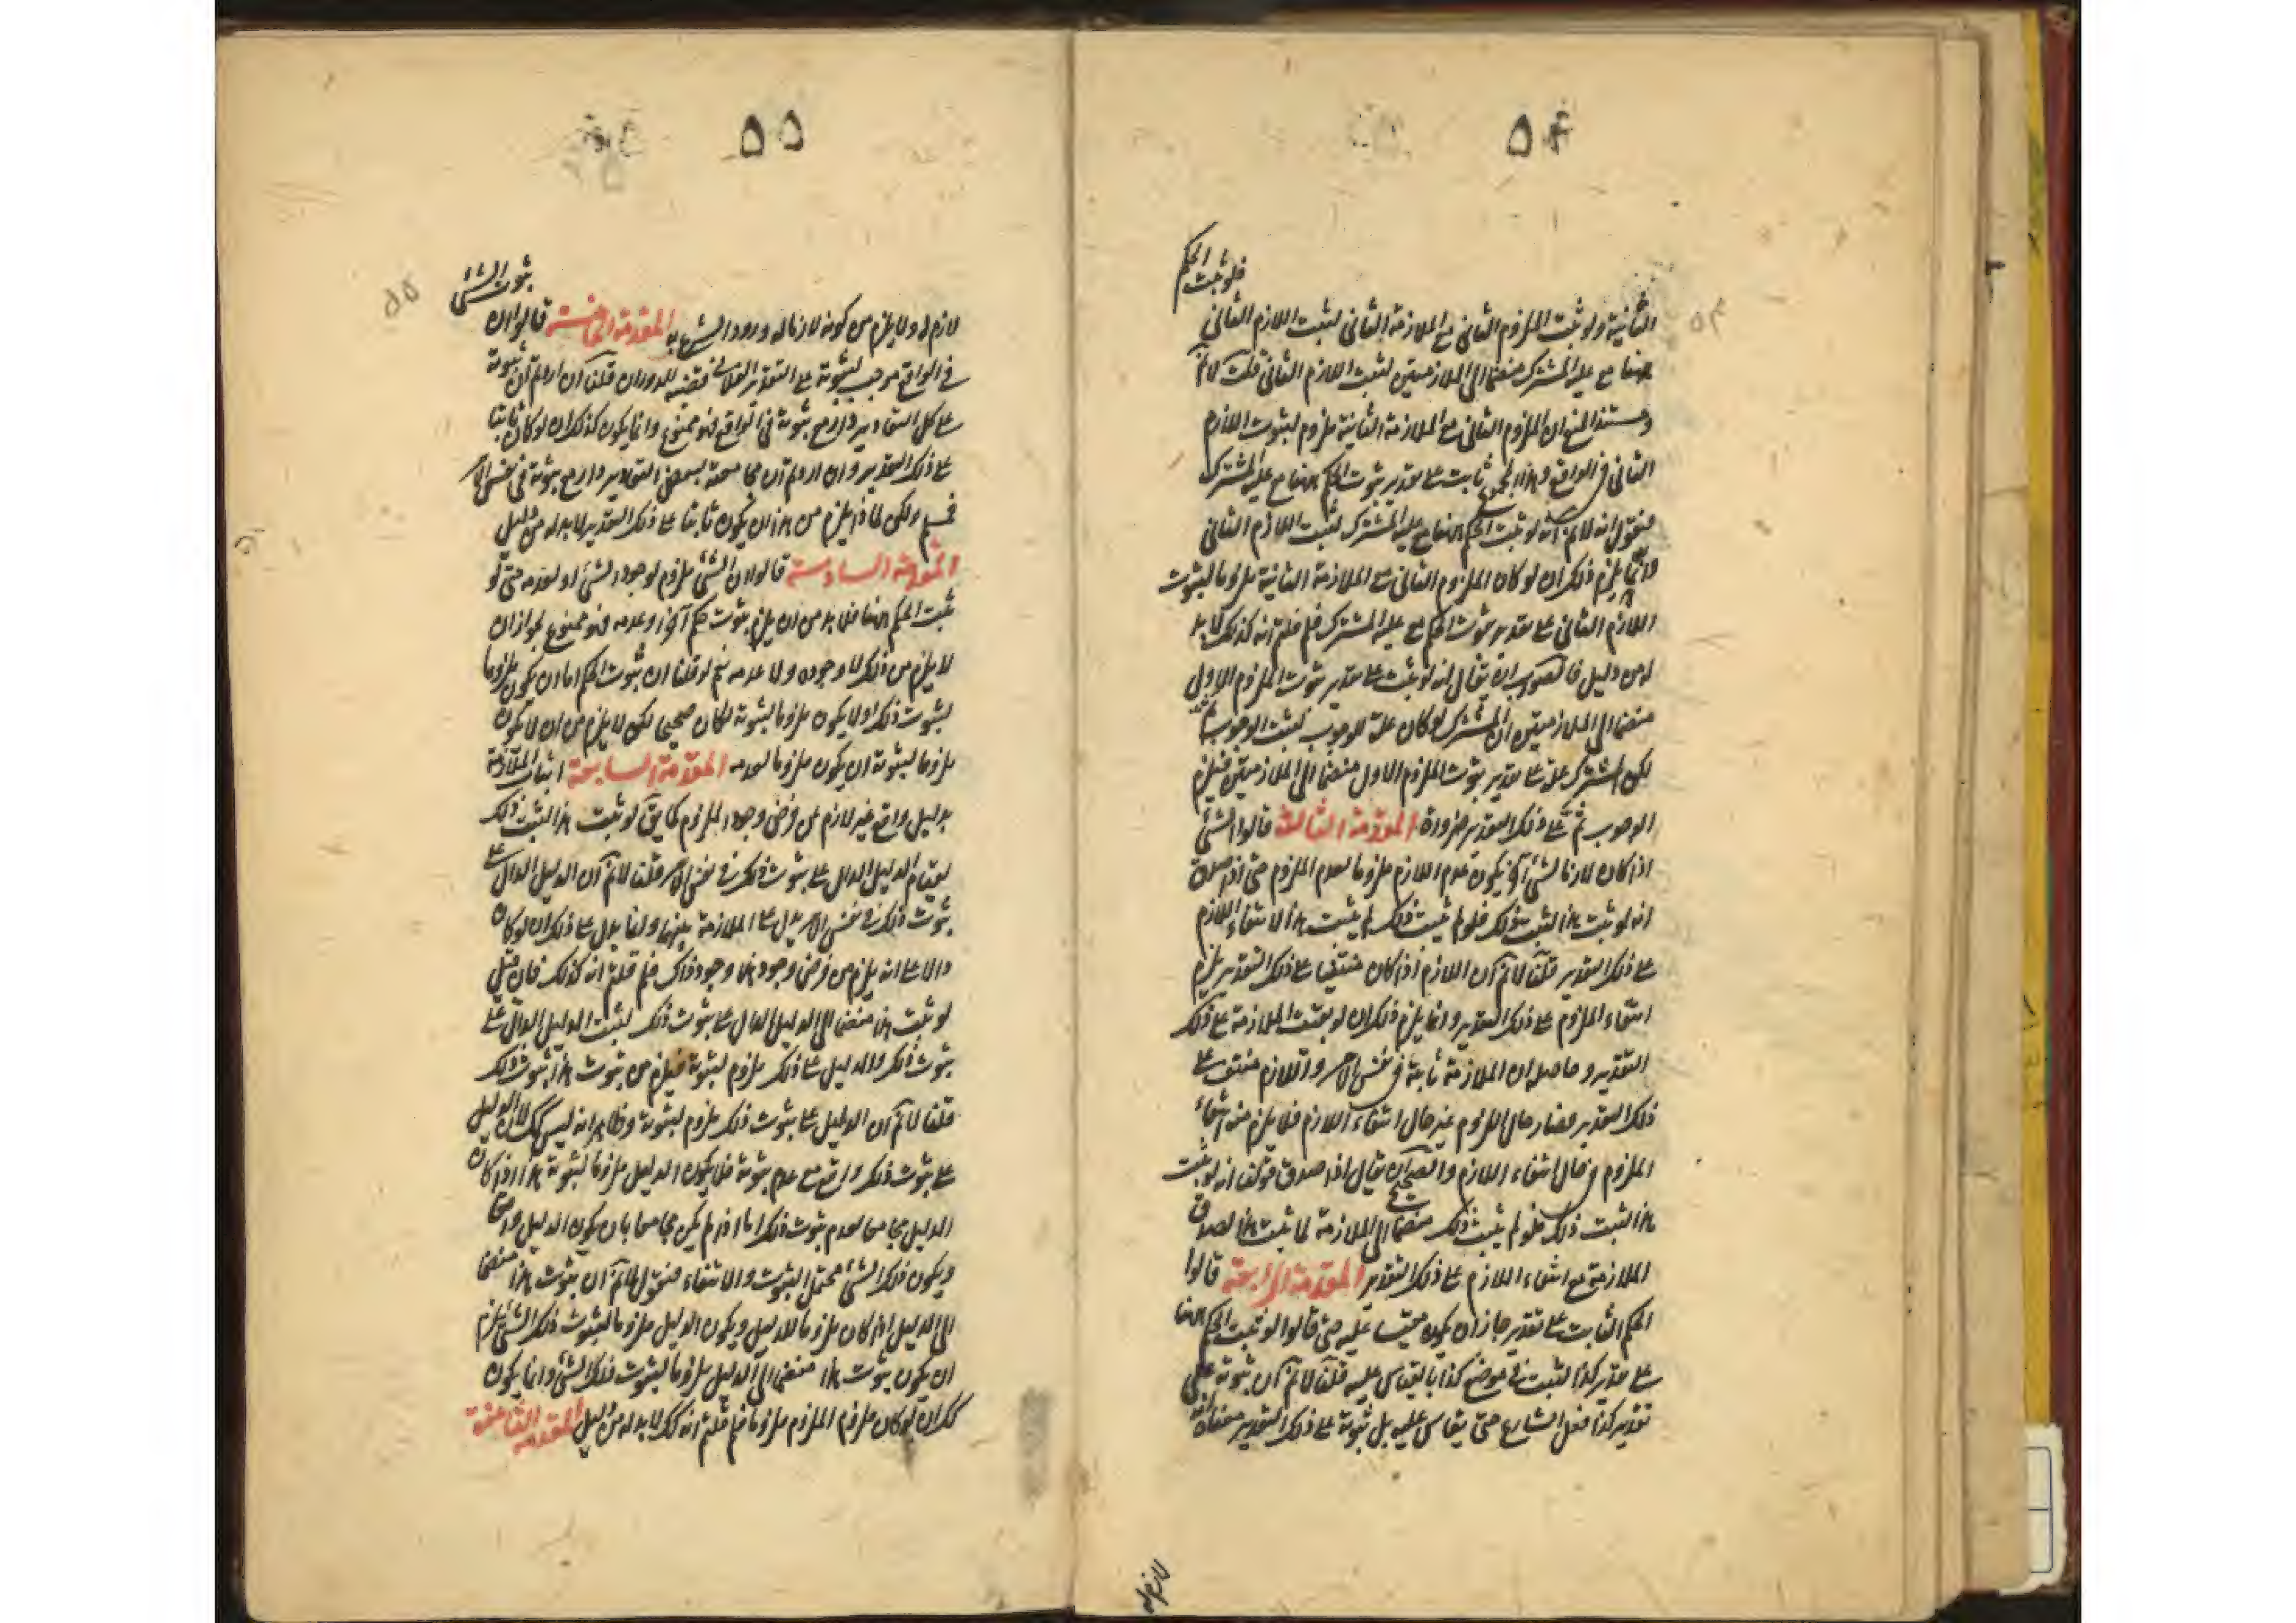 ۵۴
فلو ثبت الحكم
الثانية ولو ثبت الملزوم الثانى مع الملازمة الثانى لثبت اللازم الثانى
ههنا مع علية المشترك منضما الى الملازمتين لثبت اللازم الثانى قلت لانم
ومستند المنع ان الملزوم الثانى مع الملازمة الثانية ملزوم لثبوت اللازم
الثانى فى الواقع وهذا المجموع ثابت على تقدير ثبوت الحكم ههنا مع علية المشترك
فنقول انه لانم انه لو ثبت الحكم ههنا مع علية المشترك لثبت اللازم الثانى
وانما يلزم ذلك ان لو كان الملزوم الثانى مع الملازمة الثانية ملزوما لثبوت
اللازم الثانى على تقدير ثبوت الحكم مع علية المشترك فلم قلتم انه كذلك لابد
له من دليل فالصواب ان يقال انه لو ثبت على تقدير ثبوت الملزوم الاول
منضما الى الملازمتين ان المشترك لو كان علة للوجوب لثبت الوجوب ثمة
لكن المشترك علة على تقدير ثبوت الملزوم الاول منضما الى الملازمتين فيلزم
الوجوب ثمة على ذلك التقدير ضرورة المقدمة الثالثة قالوا الشئ
اذا كان لازما لشئ آخر يكون عدم اللازم ملزوما لعدم الملزوم حتى اذا صدق
انه لو ثبت هذا لثبت ذلك فلو لم يثبت ذلك لم يثبت هذا لانتفاء اللازم
على ذلك التقدير قلنا لانم ان اللازم اذا كان منتفيا على ذلك التقدير يلزم
انتفاء الملزوم على ذلك التقدير وانما يلزم ذلك ان لو بقيت الملازمة على ذلك
التقدير وحاصله ان الملازمة ثابتة فى نفس الامر واللازم منتف على
ذلك التقدير فصار حال الملزوم غير حال انتفاء اللازم فلا يلزم منه انتفاء
الملزوم فى حال انتفاء اللازم والصحيح ان يقال اذا صدق قولنا انه لو ثبت
هذا لثبت ذلك فلو لم يثبت ذلك منضما الى الملازمة لما ثبت هذا لصدق
الملازمة مع انتفاء اللازم على ذلك التقدير المقدمة الرابعة قالوا
الحكم الثابت على تقدير جاز ان يكون مقيسا عليه حتى قالوا لو ثبت الحكم ههنا
على تقدير كذا لثبت فى موضع كذا بالقياس عليه قلنا لانم ان ثبوته على
تقدير كذا فعل الشارع حتى يقاس عليه بل ثبوته على ذلك التقدير معناه انه
لازم له
۵۵
ثبوت الشئ
لازم له ولا يلزم من كونه لازما له ورود الشرع به المقدمة الخامسة قالوا ان
فى الواقع موجب لثبوته على التقدير الفلانى قضية للدوران قلنا ان اردتم ان ثبوته
على كل التقادير لازم مع ثبوته فى الواقع فهو ممنوع وانما يكون كذلك ان لو كان ثابتا
على ذلك التقدير وان اردتم ان مجامعته ببعض التقادير لازم مع ثبوته فى نفس الامر
فمسلم ولكن لماذا يلزم من هذا ان يكون ثابتا على ذلك التقدير لابد له من دليل
المقدمة السادسة قالوا ان الشئ ملزوم لوجود الشئ او لعدمه حتى لو
ثبت الحكم ههنا فلابد من ان يلزم ثبوت حكم آخر او عدمه فهو ممنوع لجواز ان
لا يلزم من ذلك لا وجوده ولا عدمه نعم لو قلنا ان ثبوت الحكم اما ان يكون ملزوما
لثبوت ذلك او لا يكون ملزوما لثبوته لكان صحيحا لكن لا يلزم من ان لا يكون
ملزوما لثبوته ان يكون ملزوما لعدمه المقدمة السابعة اثبات الملازمة
بدليل واقع غير لازم من فرض وجود الملزوم كما يق لو ثبت هذا لثبت ذلك
لقيام الدليل الدال على ثبوت ذلك فى نفس الامر قلنا لانم ان الدليل الدال على
ثبوت ذلك فى نفس الامر يدل على الملازمة بينهما وانما يدل على ذلك ان لو كان
دالا على انه يلزم من فرض وجود هذا وجود ذاك فلم قلتم انه كذلك فان قيل
لو ثبت هذا منضما الى الدليل الدال على ثبوت ذلك لثبت الدليل الدال على
ثبوت ذلك والدليل على ذلك ملزوم لثبوته فيلزم من ثبوت هذا ثبوت ذلك
قلنا لانم ان الدليل على ثبوت ذلك ملزوم لثبوته وظاهر انه ليس كك لان الدليل
على ثبوت ذلك واقع مع عدم ثبوته فلا يكون الدليل ملزوما لثبوته هذا اذا كان
الدليل مجامعا لعدم ثبوت ذلك اما اذا لم يكن مجامعا بان يكون الدليل واقعا
ويكون ذلك الشئ محتمل الثبوت والانتفاء فنقول لانم ان ثبوت هذا منضما
الى الدليل اذا كان ملزوما للدليل ويكون الدليل ملزوما لثبوت ذلك الشئ يلزم
ان يكون ثبوت هذا منضما الى الدليل ملزوما لثبوت ذلك الشئ وانما يكون
كك ان لو كان ملزوم الملزوم ملزوما فلم قلتم انه كك لابد له من دليل المقدمة الثامنة